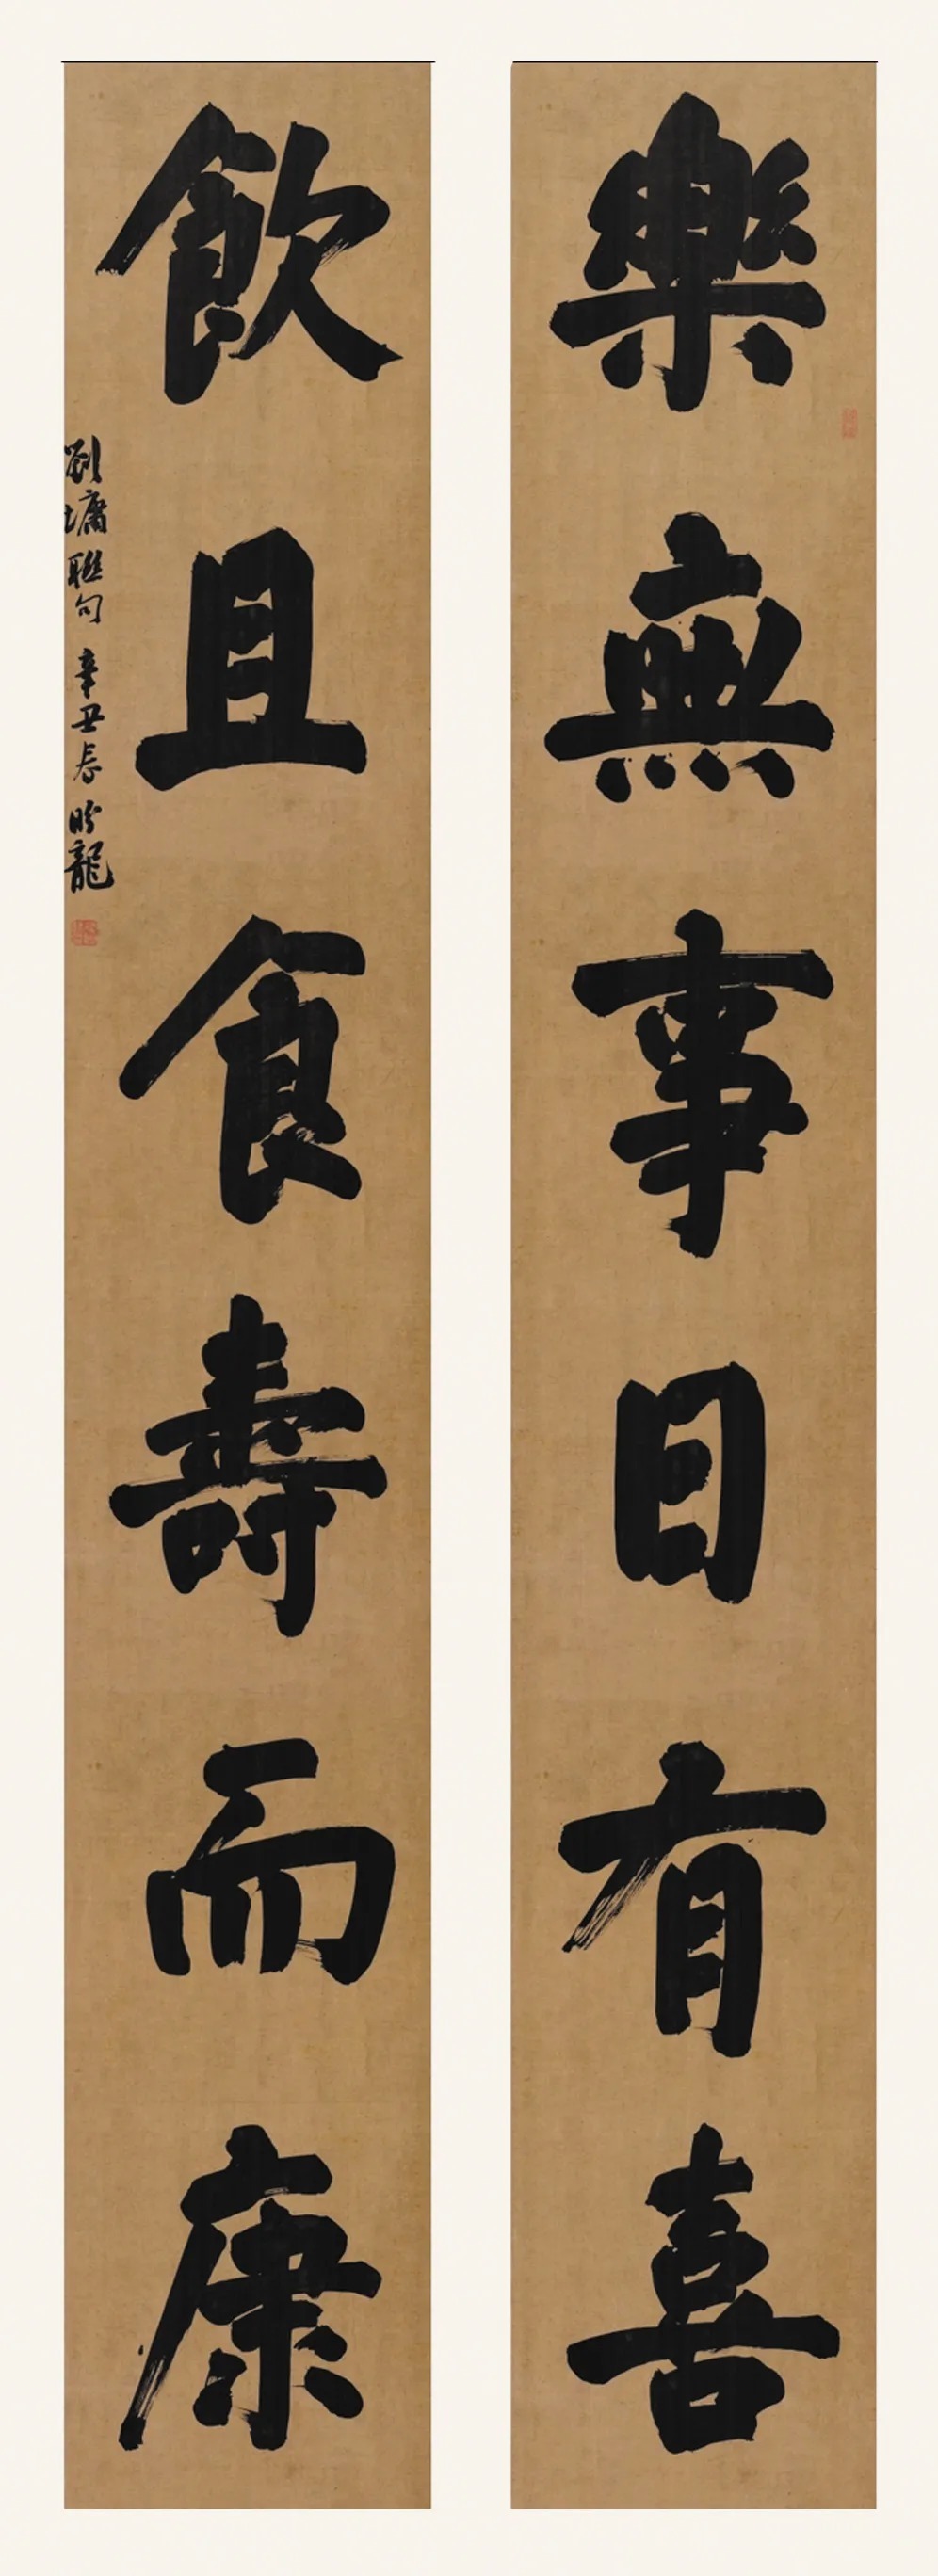 樂無事日有喜
飲且食壽而康
劉墉聯句 辛丑辰 盼龍